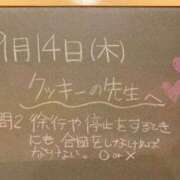 9月14日(木)
クッキーの先生へ
問2 徐行や停止をするとき
にも、合図をしなければ
ならない。○or×